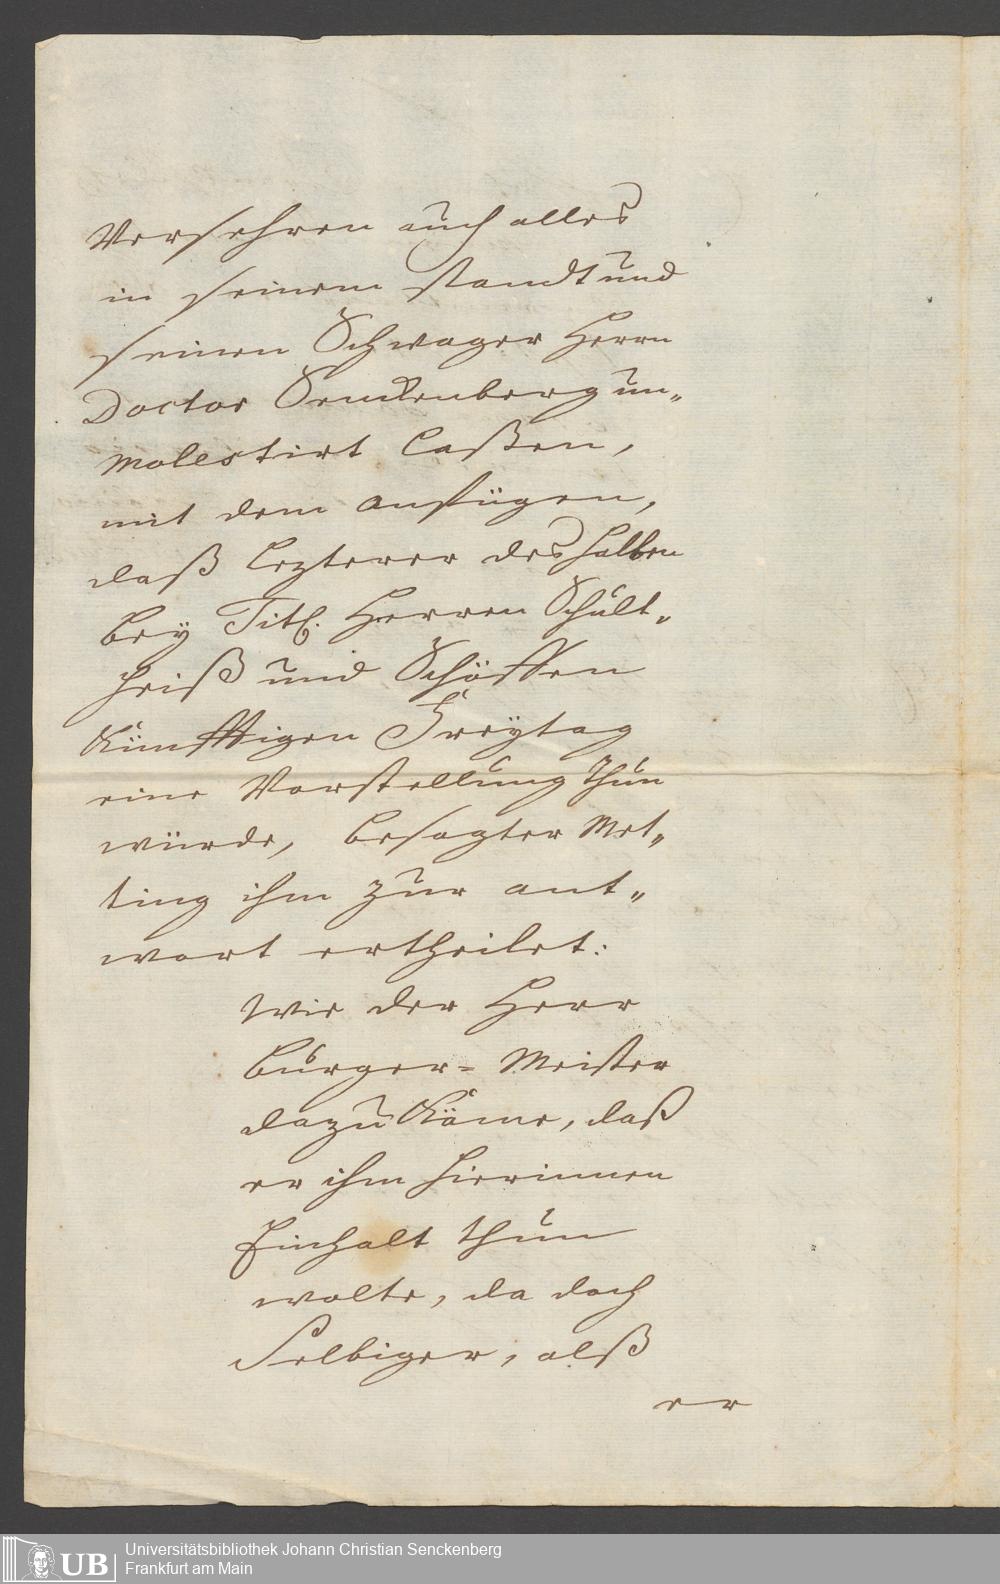 Versehren auch alles
in seinem standt und
seinen Schwager Herrn
Doctor Senckenberg un„
molestirt laßen,
mit dem anfügen,
daß lezterer deshalben
bey Titl. Herren Schult„
heiß und Schöffen
Künfftigen Freytag
eine Vorstellung thun
würde, besagter Met„
ting ihm zur ant„
wort ertheilet:
Wie der Herr
Burger= Meister
dazu Käme, daß
er ihm hierinnen
Einhalt thun
wolte, da doch
Selbiger, alß
er
UB Universitätsbibliothek Johann Christian Senckenberg
Frankfurt am Main